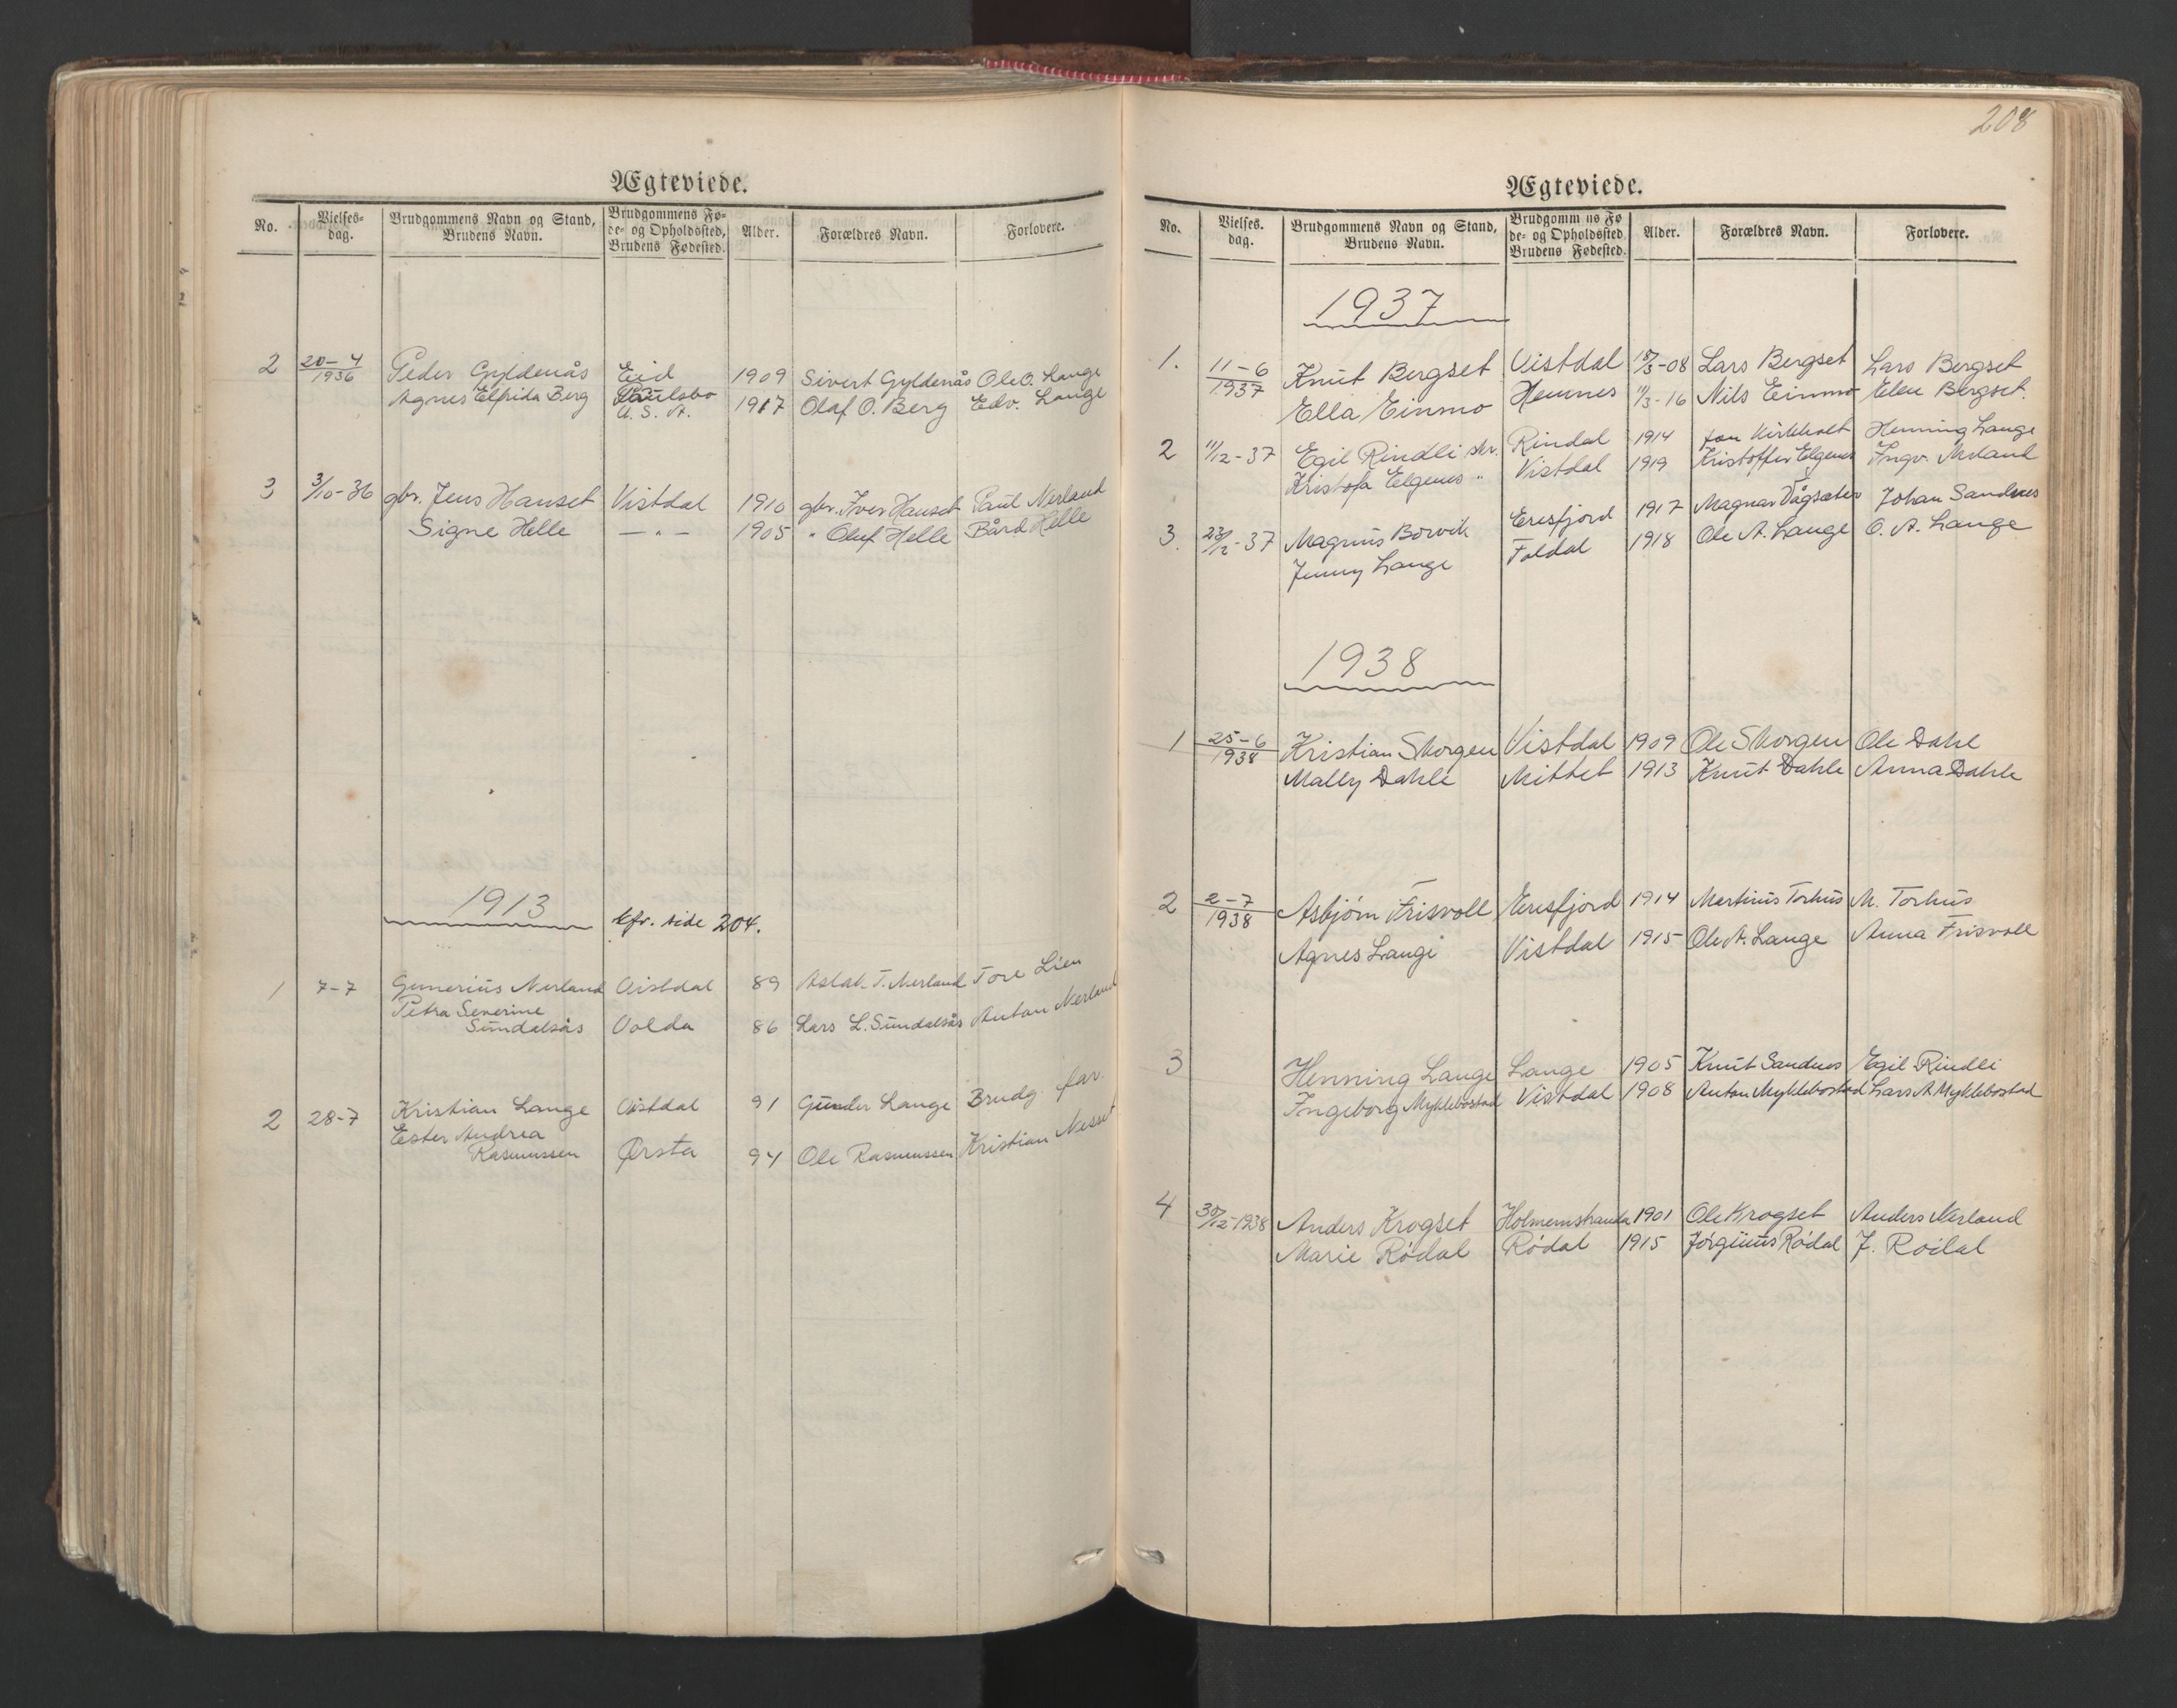 Ægteviede.
No. Vielses-dag. Brudgommens Navn og Stand, Brudens Navn. Brudgommens Fø-de- og Opholdssted, Brudens Fødested. Alder. Forældres Navn. Forlovere.
2 20-4 1936 Peder Gyldenås Eid 1909 Sivert Gyldenås Ole O. Lange
Agnes Elfrida Berg Paulsbo U.S.A. 1917 Olaf O. Berg Edv. Lange
3 3/10-36 gbr. Jens Hanset Vistdal 1910 gbr. Iver Hanset Paul Nerland
Signe Helle — " — 1905 " Oluf Helle Bård Helle
1913 kfr. side 204.
1 7-7 Gunerius Nerland Vistdal 89 Aslak T. Nerland Tore Lien
Petra Severine
Sundalsås Volda 86 Lars L. Sundalsås Anton Nerland
2 28-7 Kristian Lange Vistdal 91 Gunder Lange Brudg. far.
Ester Andrea
Rasmussen Ørsta 94 Ole Rasmussen Kristian Nesset
208
Ægteviede.
No. Vielses.dag. Brudgommens Navn og Stand, Brudens Navn. Brudgomm ns Fø de- og Opholdssted Brudens Fødested. Alder. Forældres Navn. Forlovere.
1937
1. 11-6 1937 Knut Bergset Vistdal 18/3-08 Lars Bergset Lars Bergset
Ella Einmo Hemnes 11/3-16 Nils Einmo Elen Bergset.
2 11/12-37 Egil Rindli skr. Rindal 1914 Jon Kirkholt Henning Lange
Kristofa Elgenes " Vistdal 1919 Kristoffer Elgenes Ingv. Nerland
3. 23/12-37 Magnus Bovik Eresfjord 1917 Magnar Vågsæter Johan Sandnes
Jenny Lange Foldal 1918 Ole A. Lange O. A. Lange
1938
1 25-6 1938 Kristian Skorgen Vistdal 1909 Ole Skorgen Ole Dahl
Mally Dahle Mittet 1913 Knut Dahle Anna Dahle
2 2-7 1938 Asbjørn Frisvoll Eresfjord 1914 Martinus Torhus M. Torhus
Agnes Lange Vistdal 1915 Ole A. Lange Anna Frisvoll
3 Henning Lange Lange 1905 Knut Sandnes Egil Rindli
Ingeborg Myklebostad Vistdal 1908 Anton Myklebostad Lars A. Myklebostad
4 30/12-1938 Anders Krogset Holmemstranda 1901 Ole Krogset Anders Nerland
Marie Rødal Rødal 1915 Jørginus Rødal J. Rødal